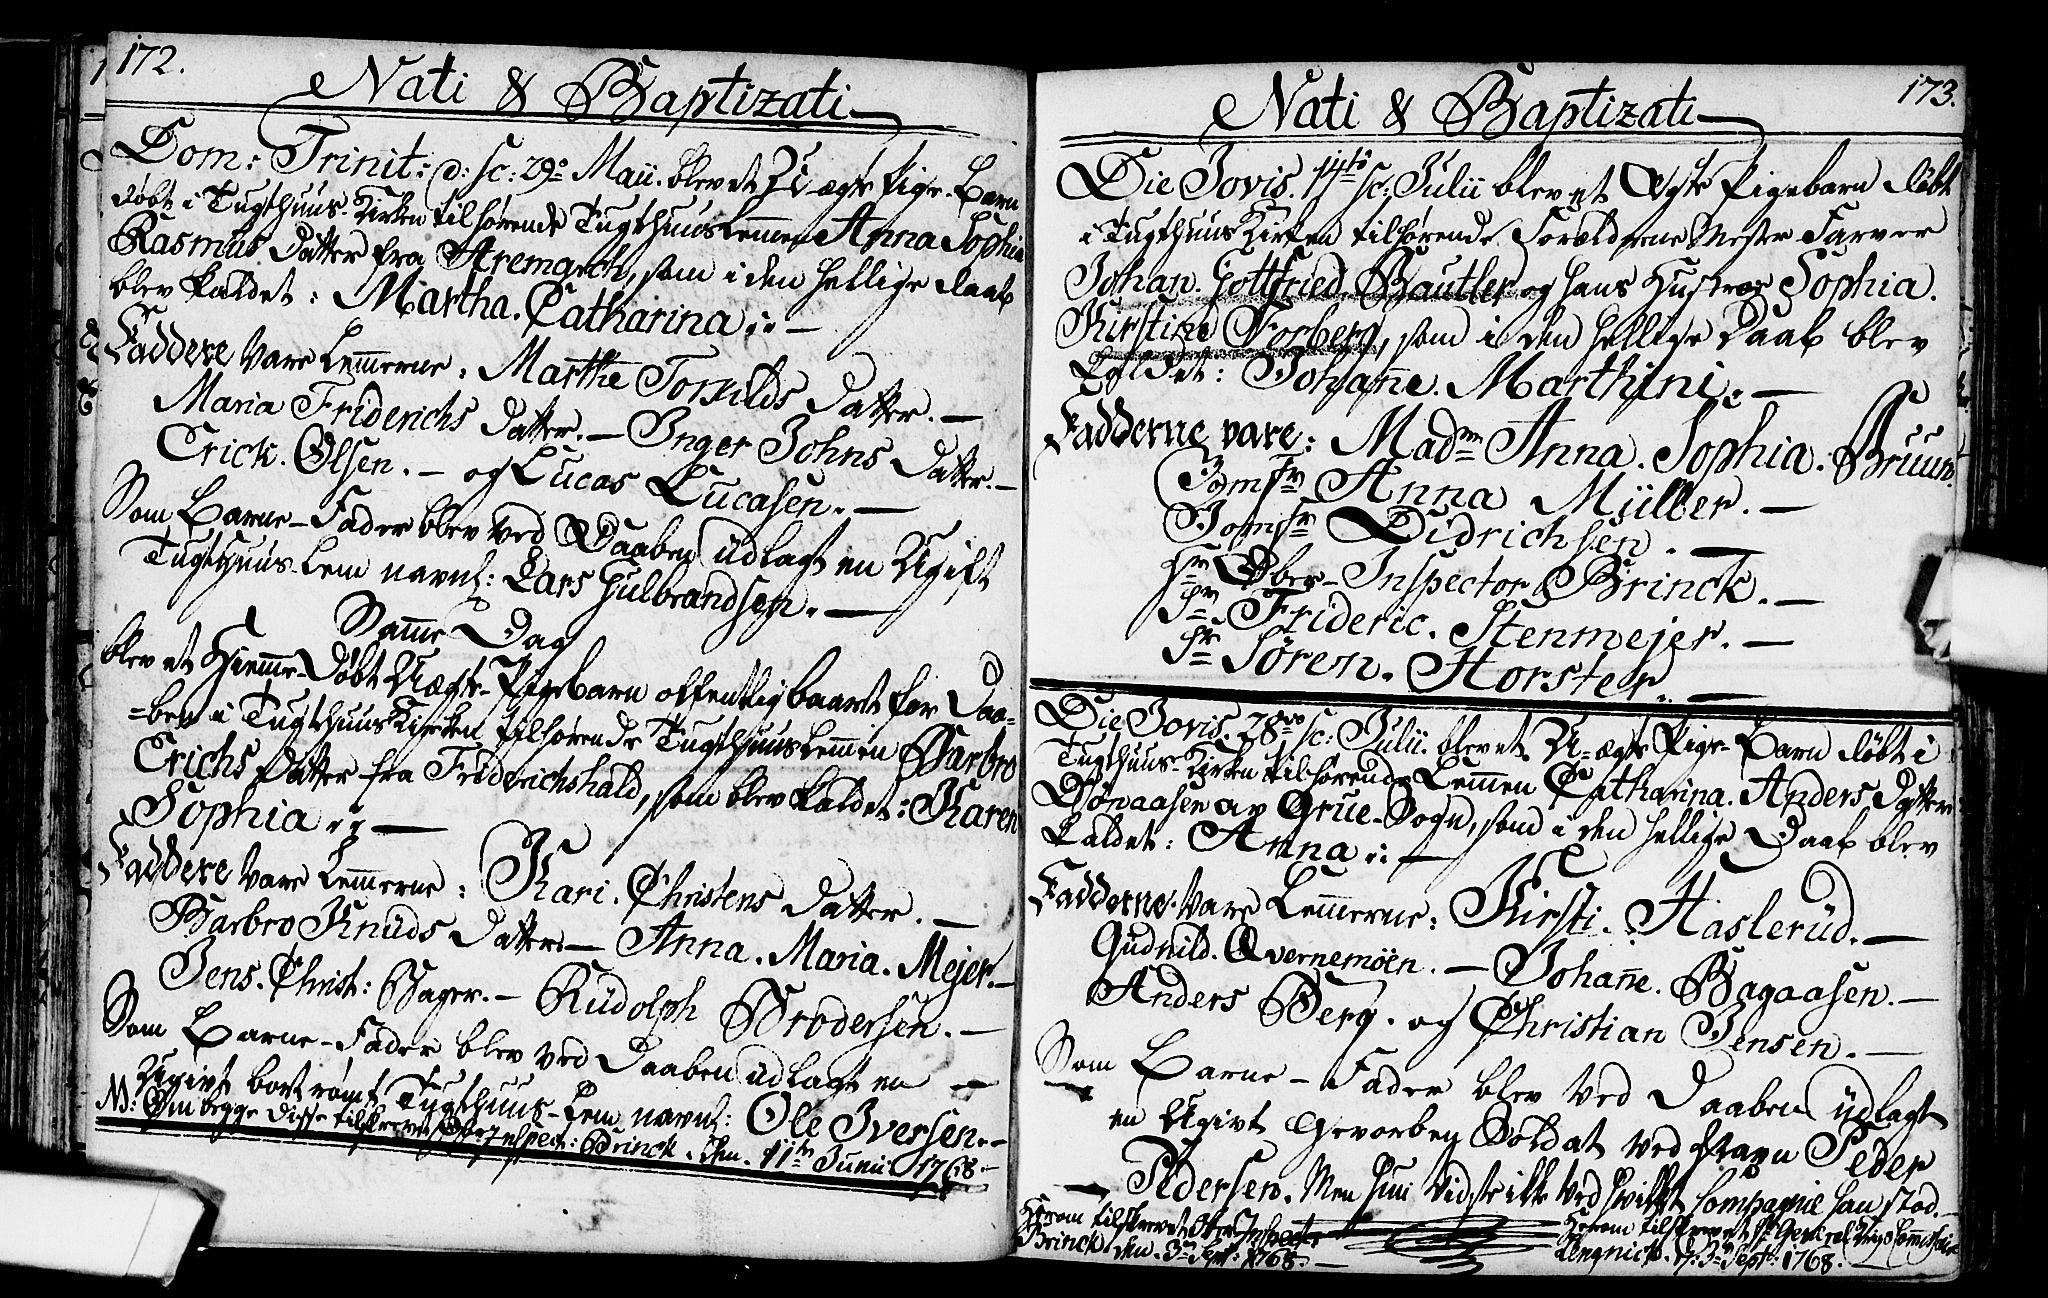 172.
Nati & Baptizati
Dom: Trinit: d: 29. Maii. blev et U-ægte Pige-Barn
døbt i Tugthuus-Kirken tilhørende Tugthuuslemmen Anna Sophia
Rasmus Datter fra Aremarch, som i den hellige Daab
blev kaldet: Martha. Catharina
Faddere vare Lemmerne: Marthe Torkilds Datter. —
Maria Friderichs Datter. — Inger Johns Datter. —
Erick. Olsen. — og Lucas Lucasen. —
Som Barne-Fader blev ved Daaben udlagt en Ugift
Tugthuus-Lem navnl: Lars Gulbrandsen. —
Samme Dag
blev et Hiemme-Døbt Uægte-Pigebarn offentlig baaret for Daa-
-ben i Tugthuus Kirken tilhørende Tugthuuslemmen Barbro
Erichs Datter fra Friderichshald, som blev kaldet: Karen
Sophia
Faddere vare Lemmerne: Kari. Christens Datter. —
Barbro Knuds Datter — Anna. Maria. Mejer. —
Jens. Christ: Bager. — Rüdolph Brodersen. —
Som Barne-Fader blev ved Daaben udlagt en —
Ugivt bortrømt Tugthuus-Lem navnl: Ole Iversen. —
N: Om begge disse tilskrevet Ober Inspect: Brinck. den. 11te Junii 1768. —
173.
Nati & Baptizati
Die Jovis. 14de sc: Julii blev et Ægte Pigebarn døbt
i Tugthuus Kirken tilhørende Forældrene Mester Farver
Johan. Gottfried. Bautler og hans Hustroe Sophia.
Kirstine Forberg, som i den hellige Daab blev
kaldet: Johanne. Marthini. —
Fadderne vare: Madm Anna. Sophia. Bruun.
Jomfr Anna Müller. —
Jomfr Didrichsen. —
Hr Ober-Inspector Brinck. —
Sr Frideric. Stenmejer. —
Sr Søren. Horster. —
Die Jovis. 28vo sc: Julii. blev et U-ægte Pige-Barn døbt i
Tugthuus-Kirken tilhørende Lemmen Catharina. Anders Datter
av Grue-Sogn, som i den hellige Daab blev
kaldet: Anna
Fadderne: vare Lemmerne: Kirsti. Haslerud. —
Gudnild. Qvernemoen. — Johanne. Bagaasen. —
Anders Berg. og Christian Jensen. —
Som Barne-Fader blev ved Daaben udlagt
en Ugivt Gevorben Soldat ved Navn Peder
Pedersen. Men hun vidste ikke ved hvilket Compagnie han stod. —
Herom tilskrevet Ober Inspector
Brinck den. 3die Sept: 1768. —
Herom tilskrevet Hr General Krigs Commissair
d: 3die Sept: 1768.